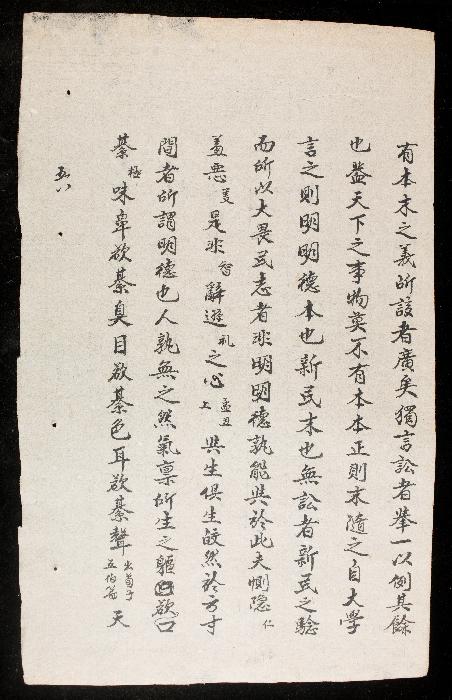 有本末之義所該者廣矣獨言訟者舉一以例其餘
也盖天下之事物莫不有本本正則末隨之自大學
言之則明明德本也新民末也無訟者新民之驗
而所以大畏民志者非明明德孰能與於此夫惻隐仁
羞悪義是非智辭遜礼之心孟丑上與生俱生皎然於方寸
間者所謂明德也人孰無之然氣禀所生之軀欲口
綦極味鼻欲綦臭目欲綦色耳欲綦聲出荀子五伯篇天
五八